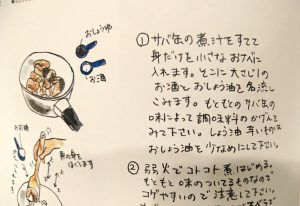 おしょうゆ
お酒
お箸
魚の身を
ほぐします
① サバ缶の煮汁をすてて
身だけを小さなおなべに
入れます。そこに大さじ1の
お酒とおしょう油を
こみます。もともとのサバ缶の
味によって調味料のかげんを
みて下さい。しょう油辛いものは
おしょう油を少なめにして下さい。
② 弱火でコトコト煮はじめる。
もともと味のついてるものなので
コゲやすいので注意して下さい。